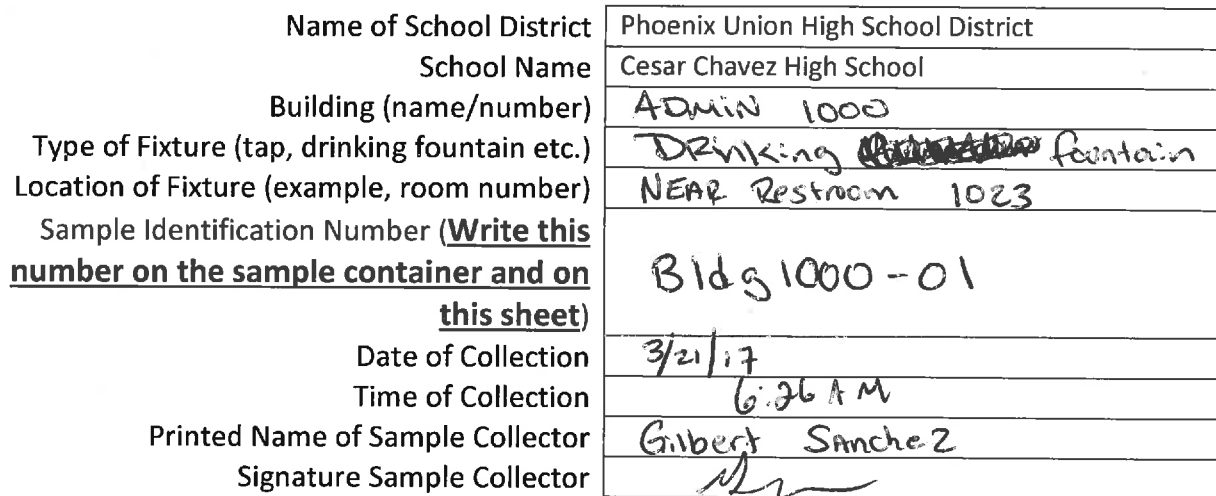 Name of School District Phoenix Union High School District
School Name Cesar Chavez High School
Building (name/number) ADMiN 1000
Type of Fixture (tap, drinking fountain etc.) DRinking fountain
Location of Fixture (example, room number) NEAR Restroom 1023
Sample Identification Number (Write this
number on the sample container and on
this sheet)
Bldg 1000-01
Date of Collection 3/21/17
Time of Collection 6:26 AM
Printed Name of Sample Collector Gilbert SAncheZ
Signature Sample Collector